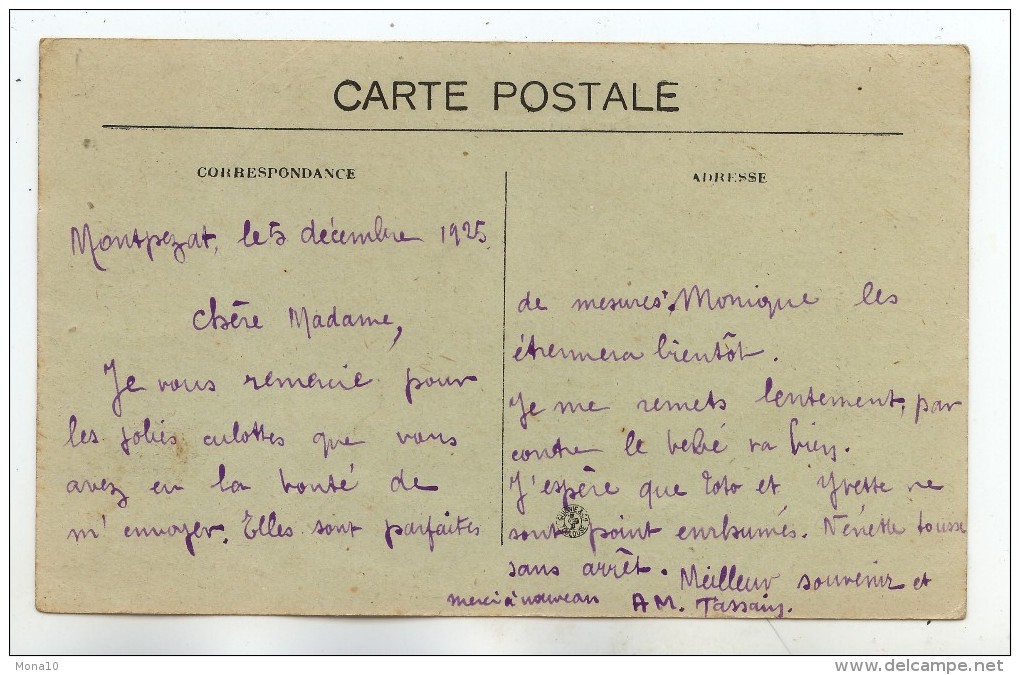 CARTE POSTALE
CORRESPONDANCE
Montpezat, le 5 décembre 1925
Chère Madame,
Je vous remercie pour
les jolies culottes que vous
avez eu la bonté de
m'envoyer. Elles sont parfaites
ADRESSE
de mesures. Monique les
étrennera bientôt.
Je me remets lentement, par
contre le bébé va bien.
J'espère que Toto et Yvette ne
sont point enrhumés. Nénette tousse
sans arrêt. Meilleur souvenir et
merci à nouveau A M. Tassain.
Mona10
www.delcampe.net